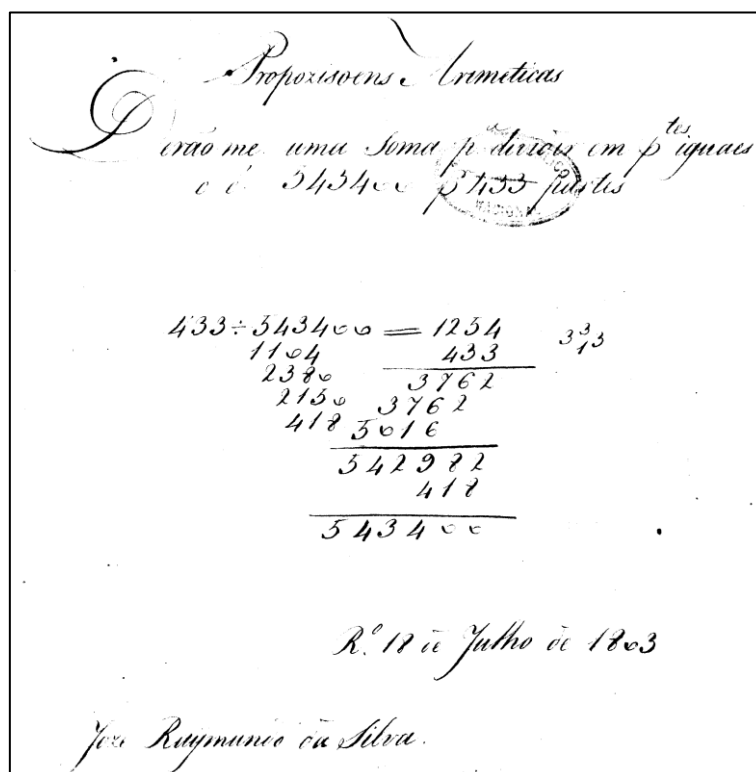 Propozisoens Arimeticas
Derão me uma Soma pª divizão em p^tes iguaes
e é 543400 p 433 partes
433÷543400 = 1254 3 3 1 3
1104 433
2380 3762
2150 3762
418 5016
542982
418
543400
R.º 18 de Julho de 1803
Joze Raymundo da Silva.